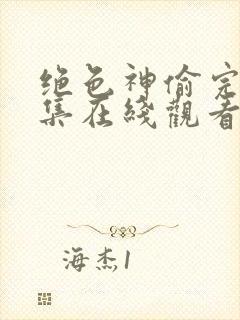 绝色神偷完
集在线觀看
海杰1